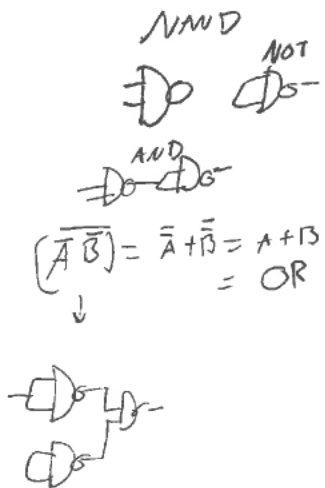 NAND
NOT
AND
(A̅ B̅)̅ = A̿ + B̿ = A + B
= OR